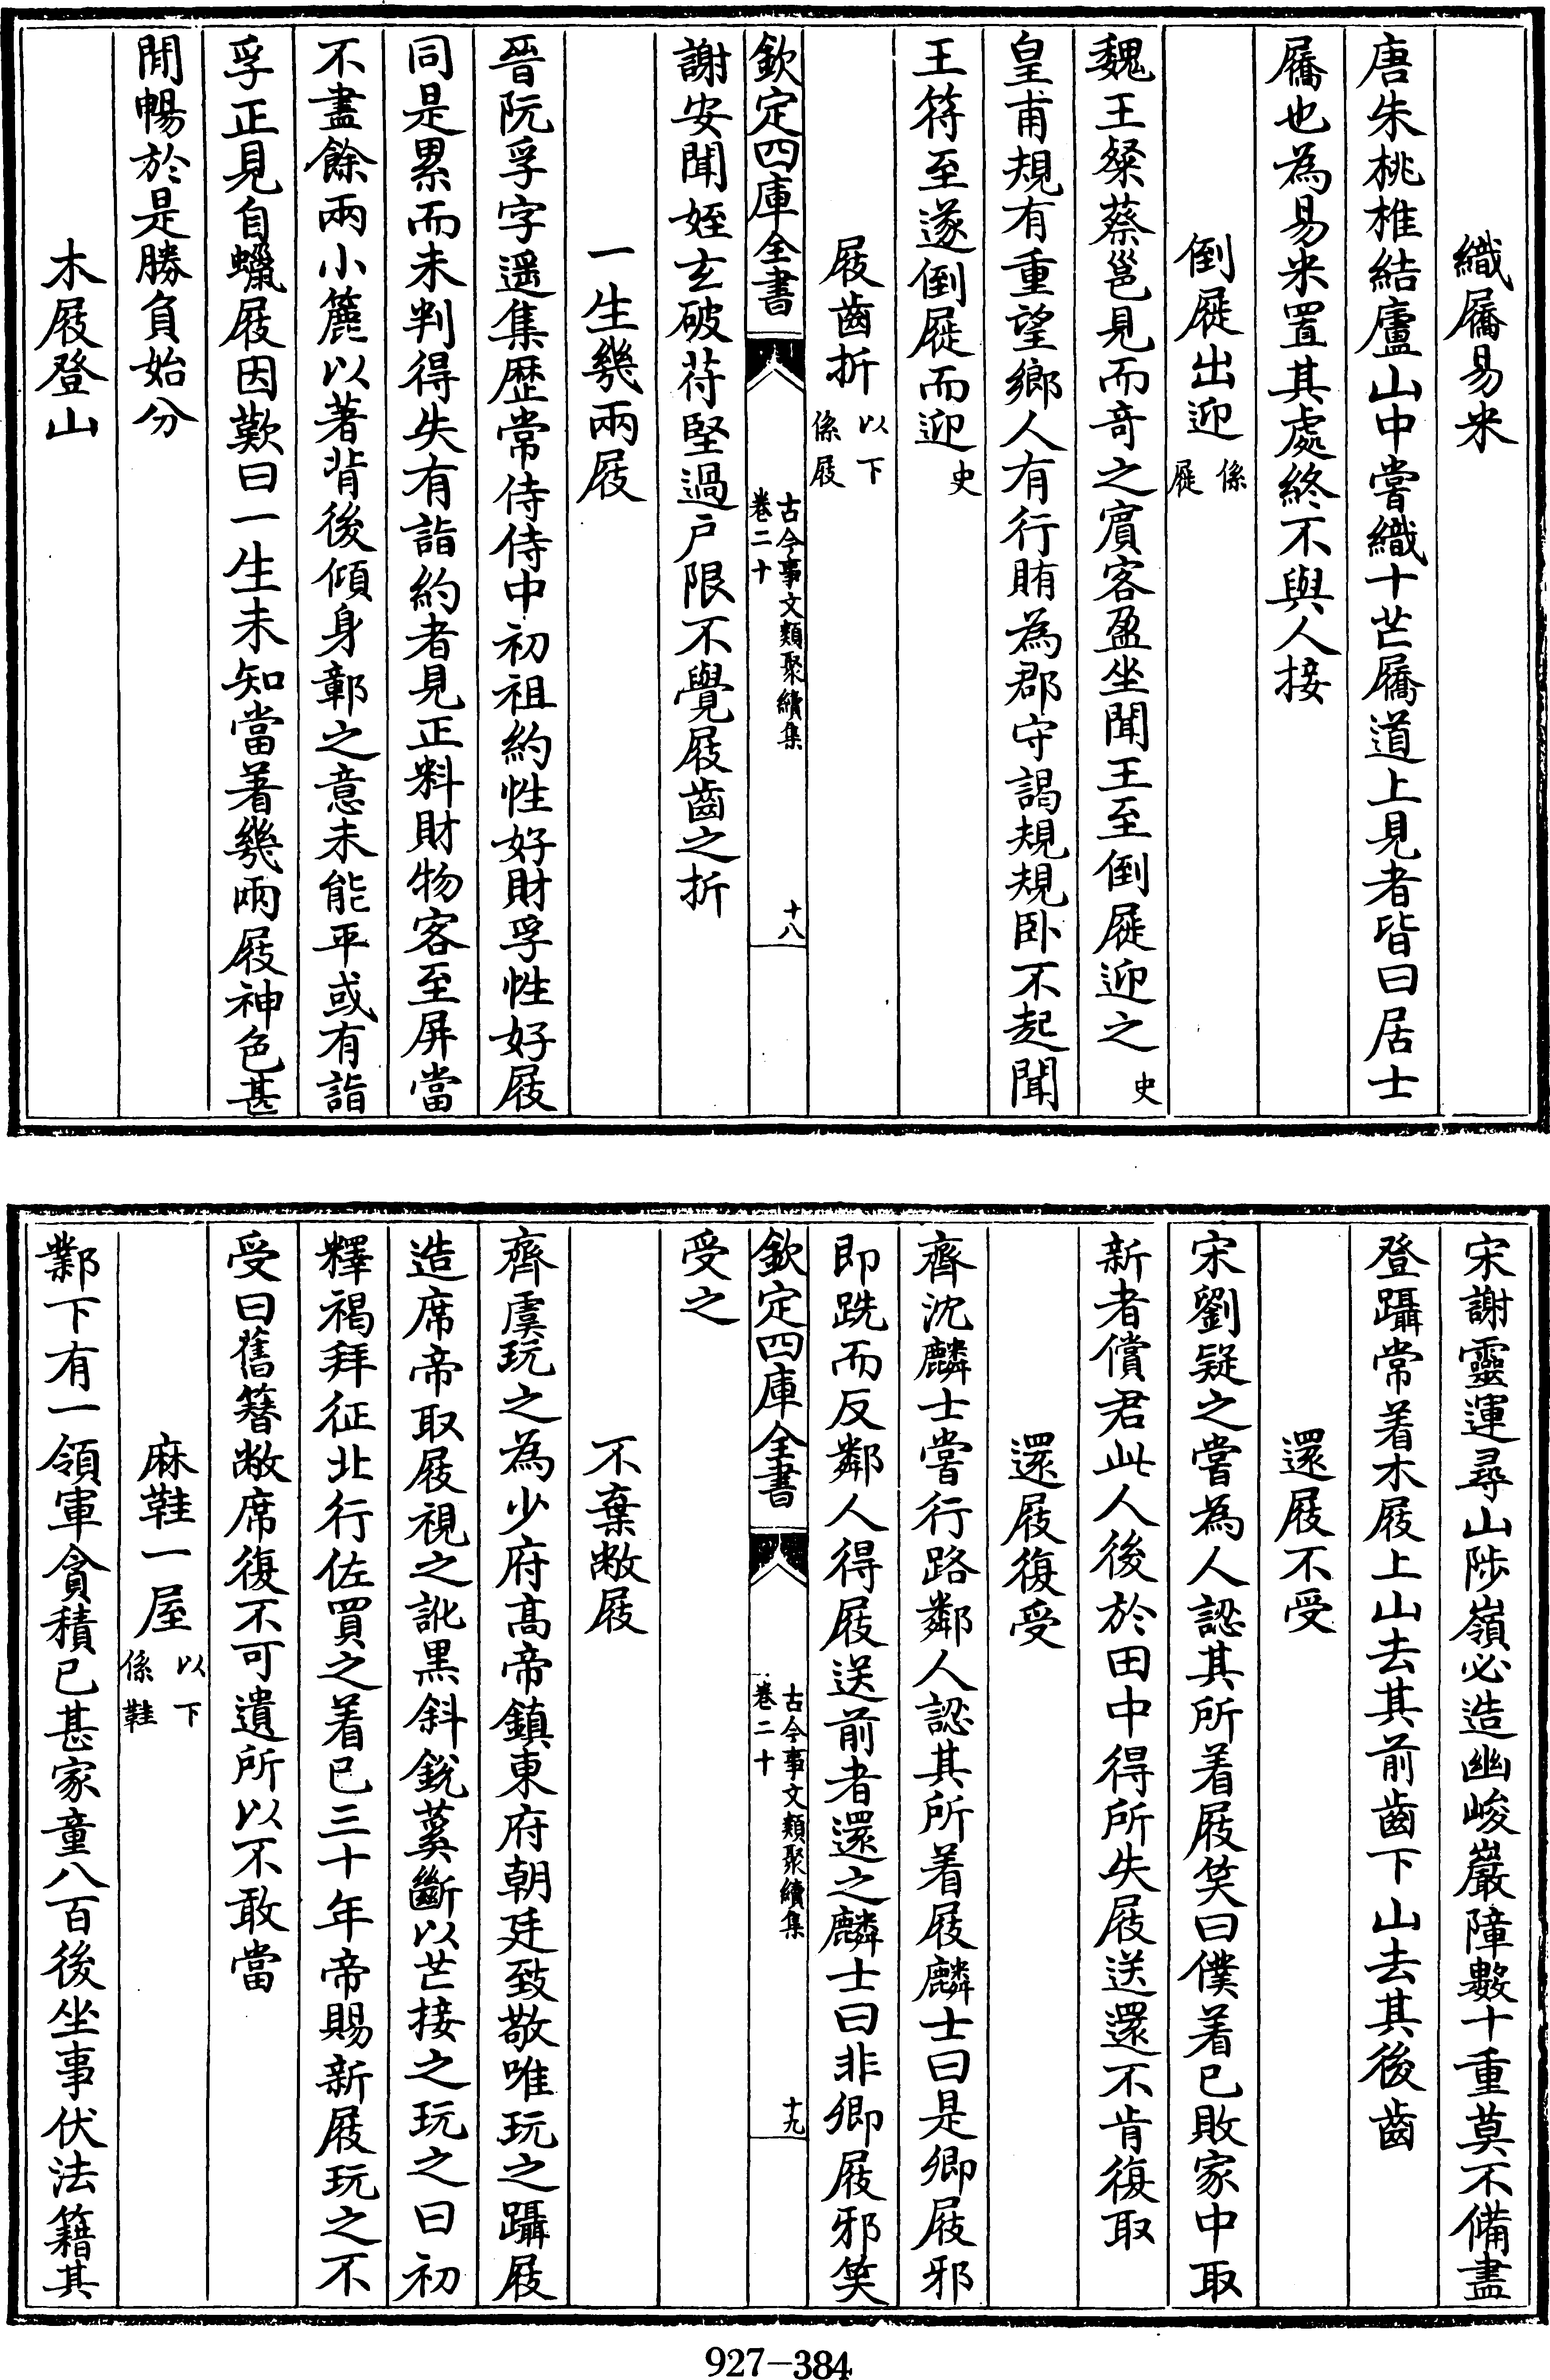 織屩易米
唐朱桃椎結廬山中嘗織十芒屩道上見者皆曰居士
屩也為易米置其處終不與人接
倒屣出迎係屣
魏王粲蔡邕見而竒之賔客盈坐聞王至倒屣迎之史
皇甫規有重望鄉人有行賄為郡守謁規規卧不起聞
王符至遂倒屣而迎史
屐齒折以下係屐
欽定四庫全書
古今事文類聚續集
卷二十
十八
謝安聞姪玄破苻堅過户限不覺屐齒之折
一生幾兩屐
晉阮孚字遥集歴常侍侍中初祖約性好財孚性好屐
同是累而未判得失有詣約者見正料財物客至屏當
不盡餘兩小簏以著背後傾身鄣之意未能平或有詣
孚正見自蠟屐因歎曰一生未知當著幾兩屐神色甚
閒暢於是勝負始分
木屐登山
宋謝靈運尋山陟嶺必造幽峻巖障數十重莫不備盡
登躡常着木屐上山去其前齒下山去其後齒
還屐不受
宋劉疑之嘗為人認其所着屐笑曰僕着已敗家中取
新者償君此人後於田中得所失屐送還不肯復取
還屐復受
齊沈麟士嘗行路鄰人認其所着屐麟士曰是卿屐邪
即跣而反鄰人得屐送前者還之麟士曰非卿屐邪笑
欽定四庫全書
古今事文類聚續集
卷二十
十九
受之
不棄敝屐
齊虞玩之為少府髙帝鎮東府朝廷致敬唯玩之躡屐
造席帝取屐視之訛黒斜鋭蒵斷以芒接之玩之曰初
釋褐拜征北行佐買之着已三十年帝賜新屐玩之不
受曰舊簪敝席復不可遺所以不敢當
麻鞋一屋以下係鞋
鄴下有一領軍貪積已甚家童八百後坐事伏法籍其
927-384